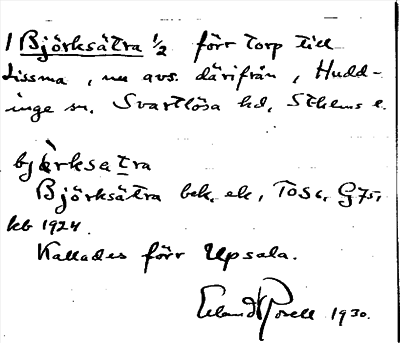 1 Björksätra 1/2 förr torp till
Lissma, nu avs. därifrån, Hudd-
inge sn. Svartlösa hd, Sthems l.
bjòrksetra
Björksätra bek. ek, TOS6, G75,
kb 1924.
Kallades förr Upsala.
Erland Rosell 1930.